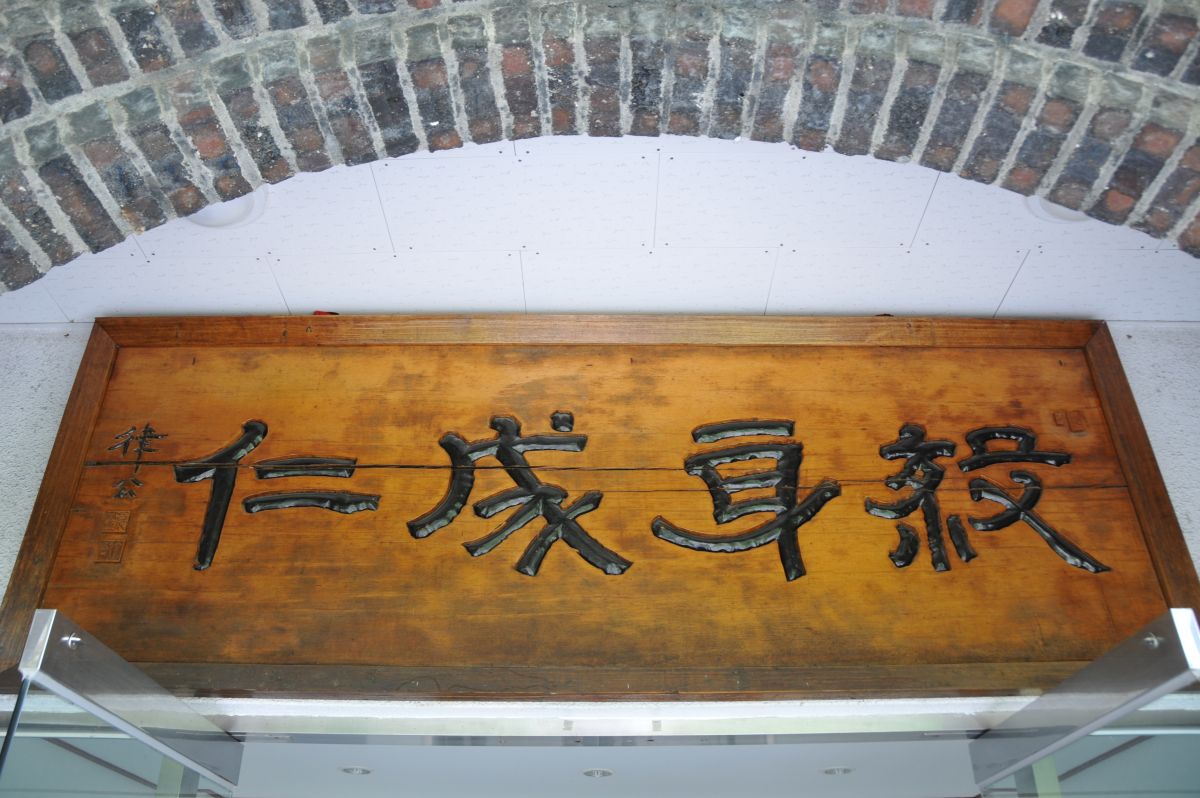 殺身成仁
律公